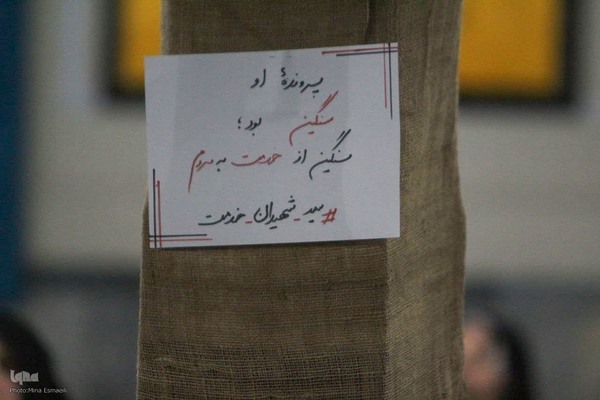 پروندهٔ او
سنگین بود؛
سنگین از خدمت به مردم
#سید_شهیدان_خدمت
ایکنا
Photo:Mina Esmaeili